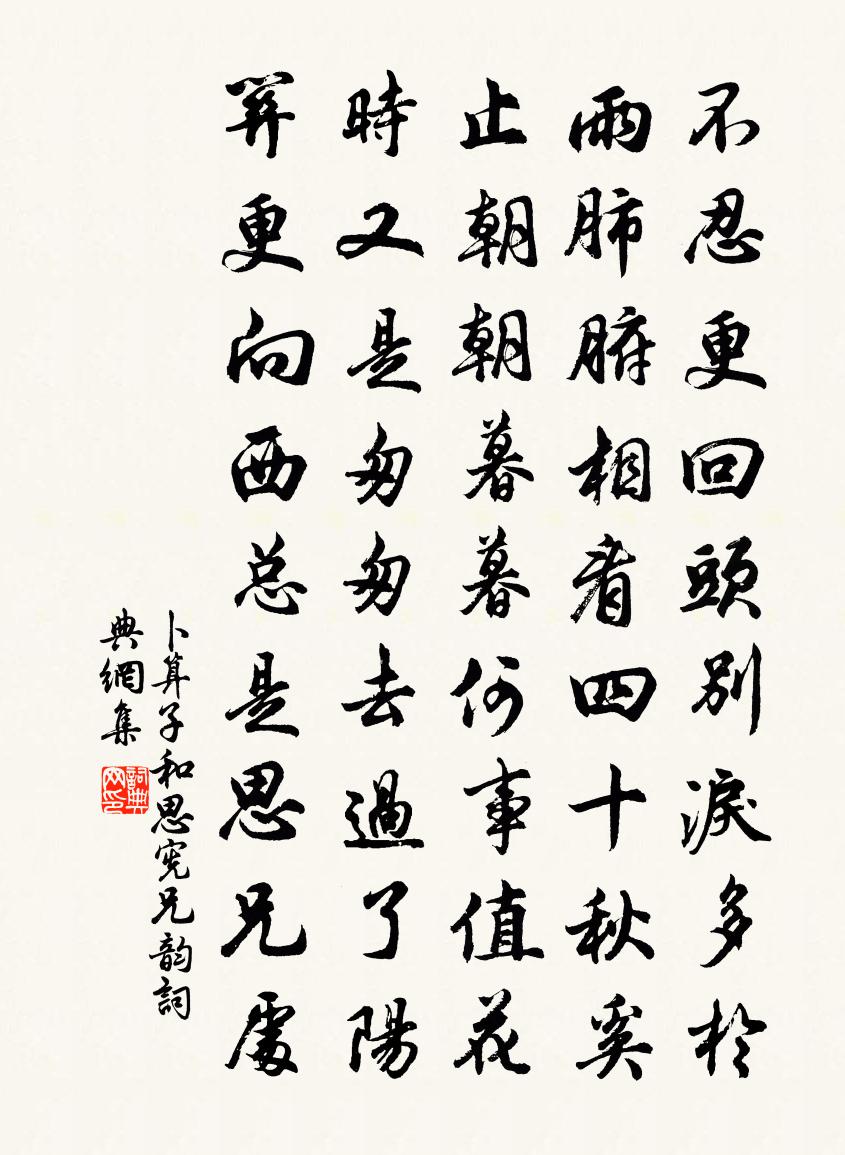 不忍更回頭別淚多於
雨肺腑相看四十秋奚
止朝朝暮暮何事值花
時又是匆匆去過了陽
關更向西总是思兄處
卜算子和思宪兄韵詞
典網集
詞典
网印